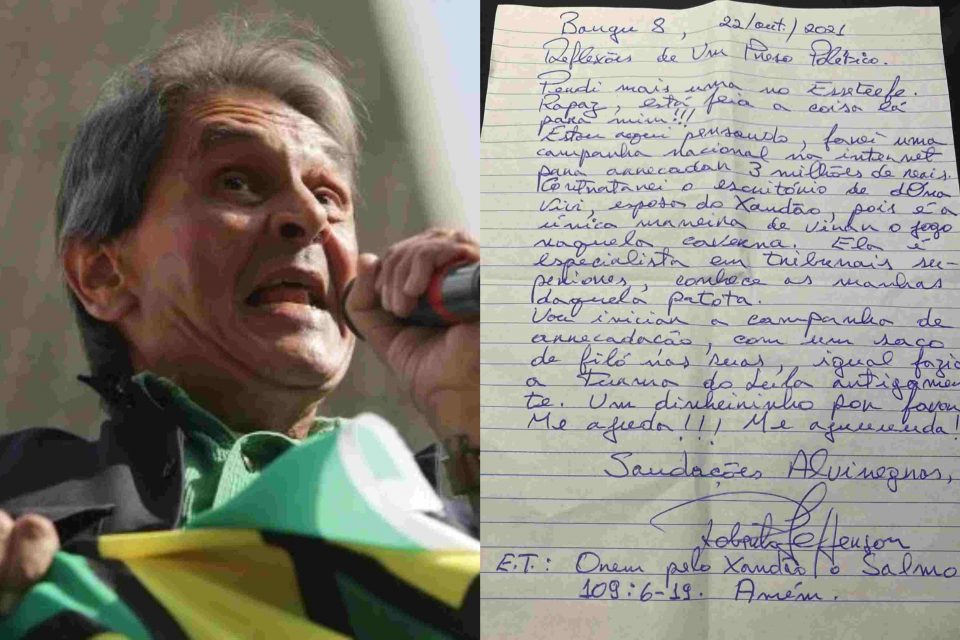 Bangu 8, 22/out./2021
Reflexões de Um Preso Político.
Perdi mais uma no Esseteefe.
Rapaz, está feia a coisa lá
para mim!!!
Estou aqui pensando, farei uma
campanha nacional na internet
para arrecadar 3 milhões de reais.
Contratarei o escritório de dOna
Vivi, esposa do Xandão, pois é a
única maneira de virar o jogo
naquela caverna. Ela é
especialista em tribunais su-
periores, conhece as manhas
daquela patota.
Vou iniciar a campanha de
arrecadação, com um saco
de filó nas ruas, igual fazia
a turma do Lula antigamen
te. Um dinheirinho por favor
Me ajuda!!! Me
Saudações Alvinegras,
Roberto Jefferson
E.T.: Orem pelo Xandão o Salmo
109:6-19. Amém.